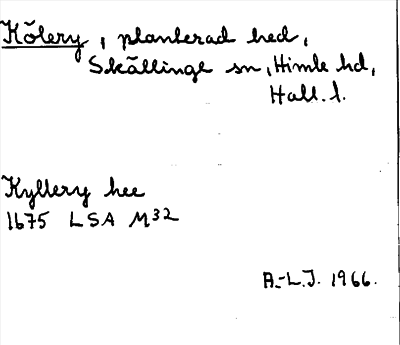 Kölery, planterad hed,
Skällinge sn, Himle hd,
Hall. l.
Kyllery hee
1675 LSA M32
A.-L.J. 1966.